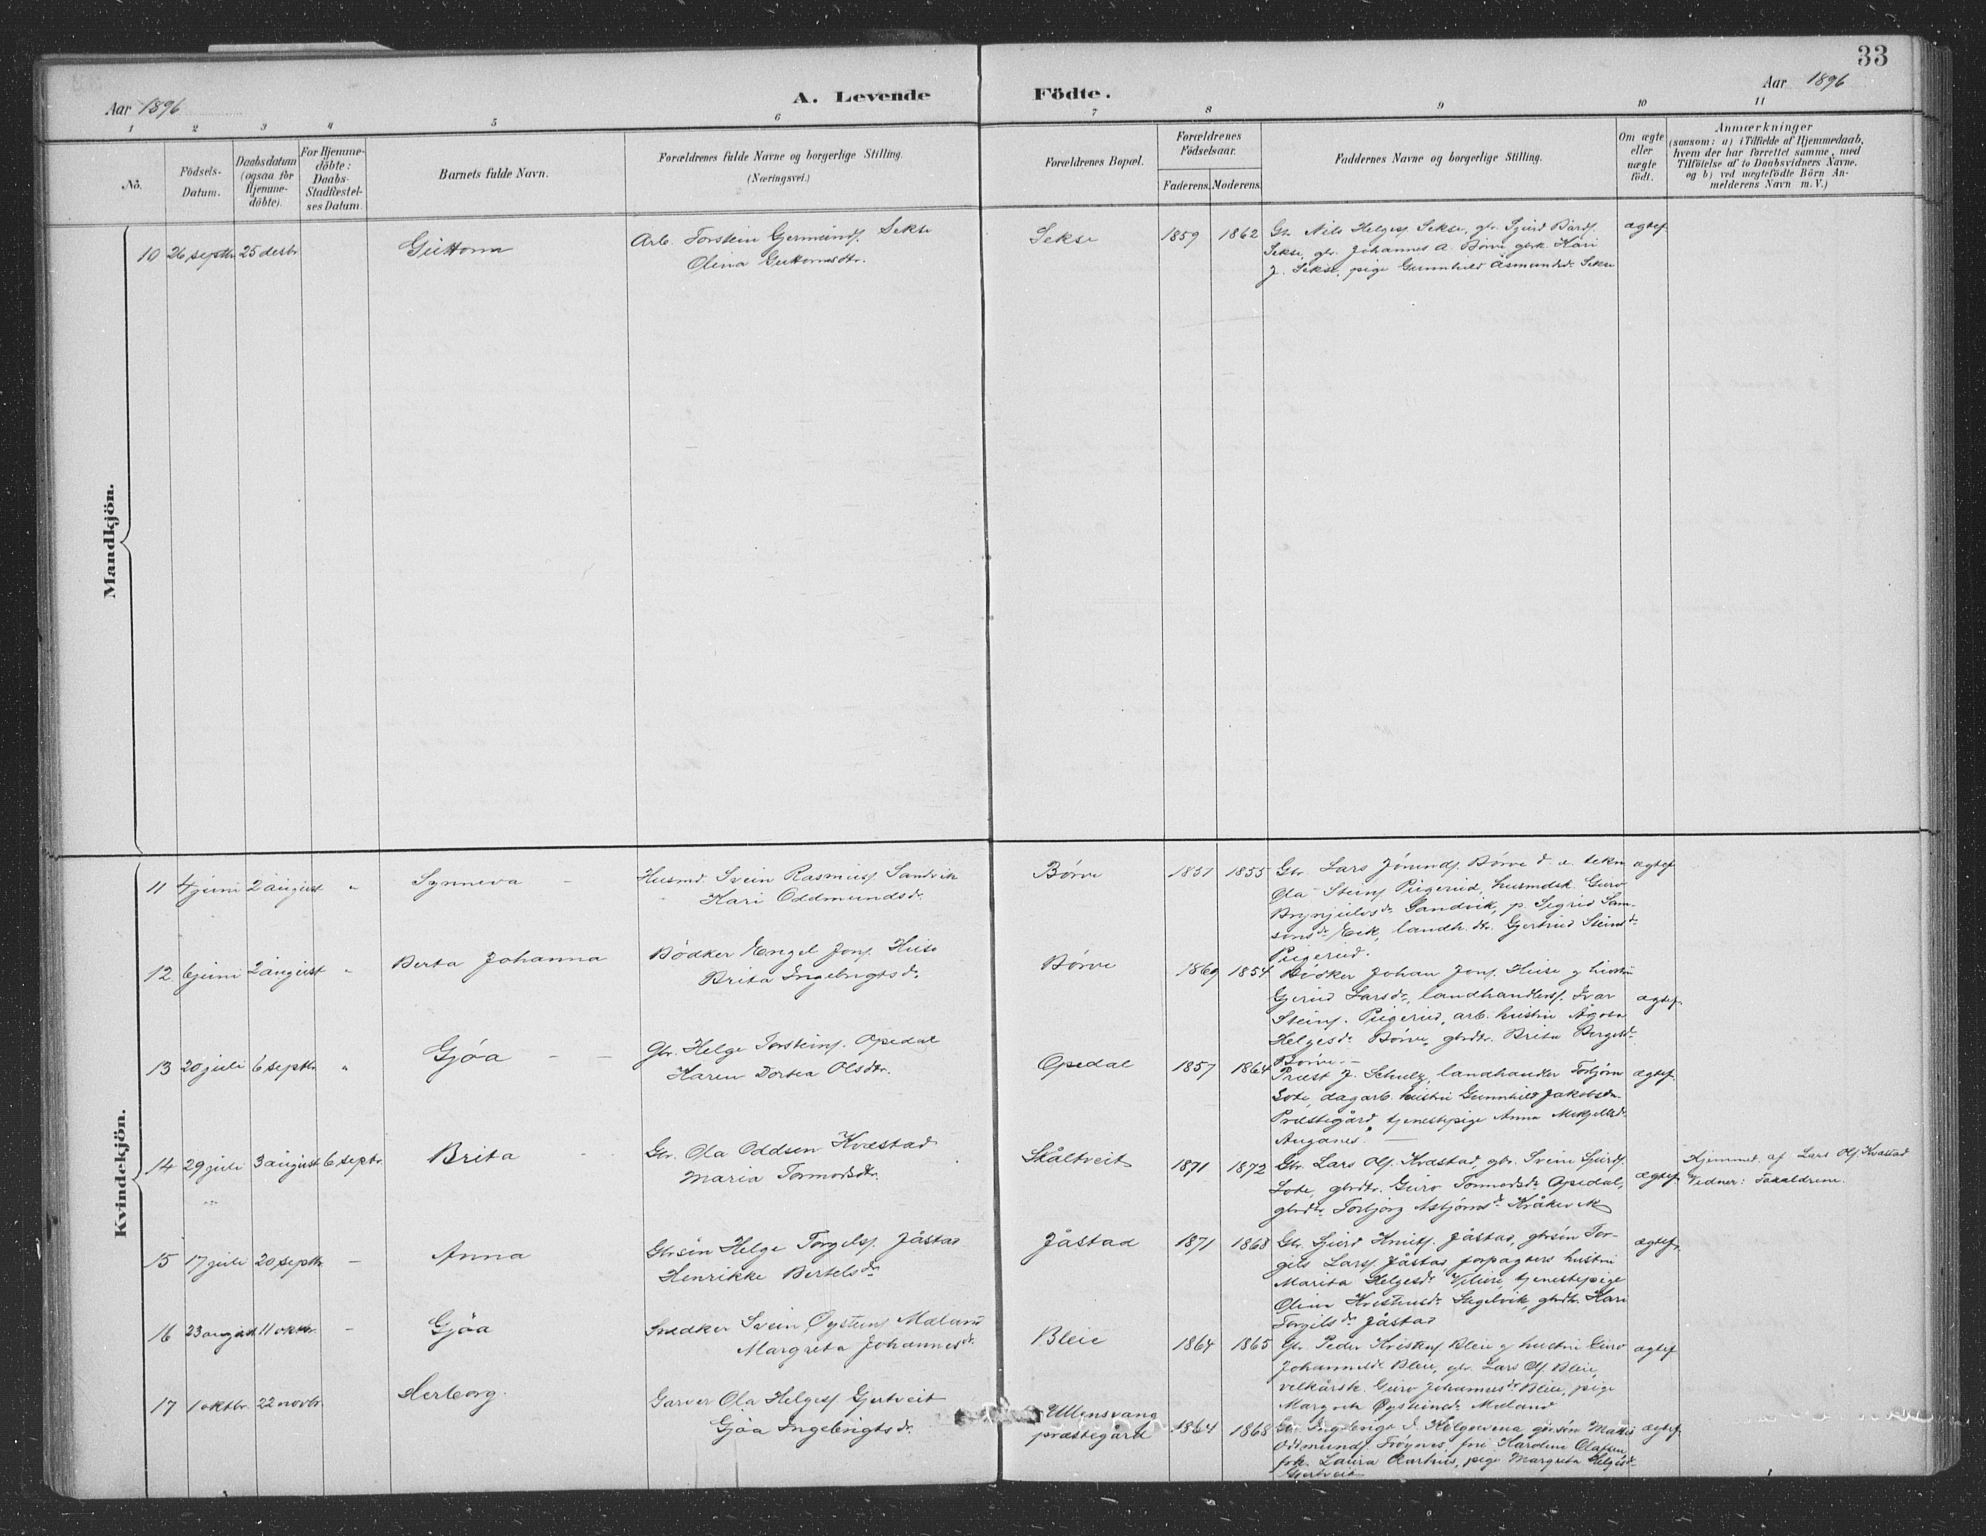 33
Aar 1896
A. Levende Födte.
Aar 1896
1 2 3 4 5 6 7 8 9 10 11
No.
Födsels-
Datum.
Daabsdatum
(ogsaa for
Hjemme-
döbte).
For Hjemme-
döbte:
Daabs-
Stadfæstel-
ses Datum.
Barnets fulde Navn.
Forældrenes fulde Navne og borgerlige Stilling.
(Næringsvei.)
Forældrenes Bopæl.
Forældrenes
Födselsaar.
Faderens. Moderens.
Faddernes Navne og borgerlige Stilling.
Om ægte
eller
uægte
födt.
Anmærkninger
(saasom: a) i Tilfælde af Hjemmedaab,
hvem der har forrettet samme, med
Tilföielse af to Daabsvidners Navne.
og b) ved uægtefödte Börn An-
melderens Navn m. V.)
Mandkjön.
10 26 septbr. 25 desbr. Guttorm
Arb. Torstein Germunds. Sekse
Olina Guttormsdtr.
Sekse 1859 1862
Gbr. Nils Helges. Sekse, gbr. Sjurd Bårds.
Sekse, gbr. Johannes A. Börve, gbrk. Kari
J. Sekse, pige Gunnhild Åsmundsdr. Sekse
ægtef.
Kvindekjön.
11 4 juni 2 august " Synneva
Husmd. Svein Rasmus. Sandvik
Kari Oddmundsdr.
Börve 1851 1855
Gbr. Lars Jörunds. Börve d. e. tekn
Ola Steins. Pugerud, husmdsk. Guro
Brynjulvsdr. Sandvik, p. Sigrid Sam-
sonsdr. Eek, landh. dtr. Gjertrud Steinsdr.
Pugerud.
ægtef.
12 6 juni 2 august " Berta Johanna
Bödker Engel Jons. Huse
Brita Ingebrigtsdr.
Börve 1869 1854
Bödker Johan Jons. Huse g hustru
Gjerud Larsdr., landhandlers. Ivar
Steins. Pugerud, arb. hustru Ågota
Helgesdr. Börve, gbrdtr. Brita Bergesdr.
Börve. –
ægtef.
13 20 juli 6 septbr. " Gjöa
Gbr. Helge Torsteins. Opedal
Karen Dortea Olsdtr.
Opedal 1857 1864
Præst J. Schulz, landhandler Torbjörn
Lote, dagarb. hustru Gunnhild Jakobsdr.
Præstegård, tjenestepige Anna Mikjelsdr.
Auganes. –
ægtef.
14 29 juli 3 august 6 septbr. Brita
Gbr. Ola Oddsen Kvæstad
Maria Tormodsdtr.
Skåltveit 1871 1872
Gbr. Lars Ols. Kvæstad, gbr. Svein Sjurds.
Lote, gbrdtr. Guro Tormodsdr. Opedal,
gbrdtr. Torbjörg Asbjörnsdr. Kråkevik
ægtef.
Hjemmed. af Lars Ols. Kvæstad
Vidner: Forældrene.
15 17 juli 20 septbr. – Anna
Gbrsön Helge Torgels. Jåstad
Henrikke Bertelsdr.
Jåstad 1871 1868
Gbr. Sjurd Knuts. Jåstad, gbrsön Tor-
gils Lars. Jåstad, forpagters hustru
Marita Helgesdr. Vilure, tjenestepige
Olina Kristensdr. Skgelvik, gbrdtr. Kari
Torgilsdr. Jåstad
ægtef.
16 23 august 11 oktbr. – Gjöa
Snedker Svein Öysteins. Mæland
Margreta Johannesdr.
Bleie 1864 1865
Gbr. Peder Kristens. Bleie g hustru Guro
Johannesdr. Bleie, gbr. Lars Ols. Bleie,
velkårsk. Guro Johannesdr. Bleie, pige
Margreta Öysteinsdr. Mæland
ægtef.
17 1 oktbr. 22 novbr. Herborg.
Garver Ola Helges. Gjertveit
Gjöa Ingebrigtsdr.
Ullensvang
præstegård 1864 1868
Gbr. Ingebrigt J. Helgevena, gbrsön
Oddmunds. Fröynes, fru Karoline Olafsen,
frk. Laura Aarhus, pige Margreta Helgesdr.
Gjertveit
ægtef.